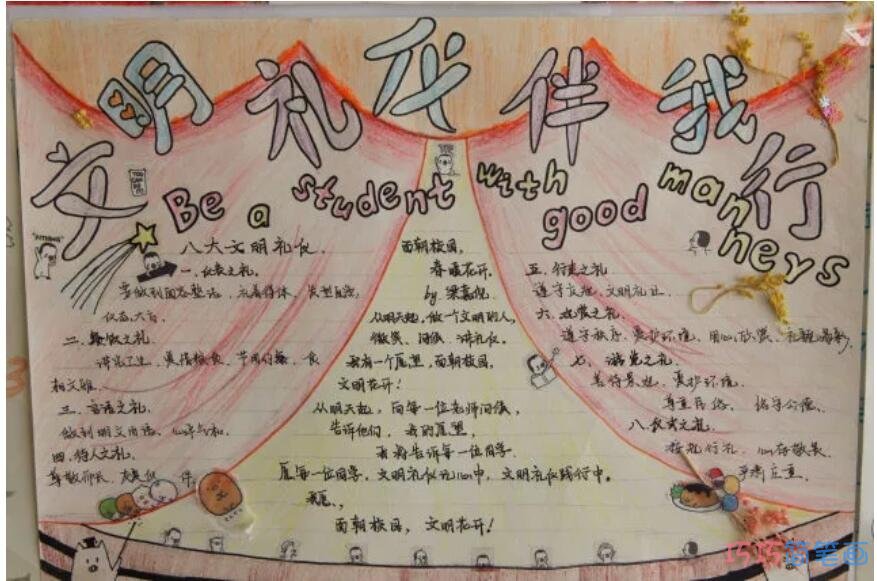 文明礼仪伴我行
Be a student with good manners
八大文明礼仪
一、仪表之礼。
要做到面容整洁、衣着得体、发型自然、
仪态大方
二、餐饮之礼。
讲究卫生、爱惜粮食、节用行餐、食
相文雅
三、言语之礼
做到用文明用语、心平气和
四、待人之礼
尊敬师长、友爱 伴
面朝校园,
春暖花开。
by 梁嘉悦
从明天起,做一个文明的人,
微笑、问候、讲礼仪。
我有一个愿望,面朝校园,
文明花开!
从明天起,向每一位老师问候,
告诉他们,我的愿望,
我将告诉每一位同学
愿每一位同学,文明礼仪记心中,文明礼仪践行中。
我愿,
面朝校园,文明花开!
五、行走之礼
遵守交规、文明礼让
六、观赏之礼
遵守秩序、爱护环境、用心欣赏、礼貌喝彩
七、游览之礼
善待景观、爱护环境、
尊重民俗、恪守公德。
八、仪式之礼
按规行礼、心存敬畏、
严肃庄重
巧巧简笔画